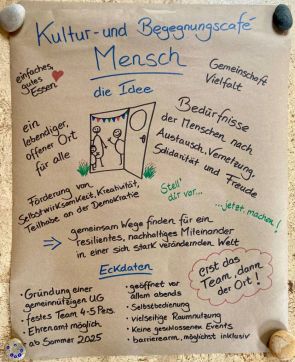 Kultur- und Begegnungscafé
Mensch
die Idee
einfaches,
gutes
Essen
Gemeinschaft
Vielfalt
ein
lebendiger,
offener Ort
für alle
Bedürfnisse
der Menschen nach
Austausch, Vernetzung,
Solidarität und
Freude
Förderung von
Selbstwirksamkeit, Kreativität,
Teilhabe an der Demokratie
Stell'
dir vor...
...jetzt machen!
gemeinsam Wege finden für ein
resilientes, nachhaltiges Miteinander
in einer sich stark verändernden Welt
Eckdaten
• Gründung einer
gemeinnützigen UG
• festes Team 4-5 Pers.
• Ehrenamt möglich
• ab Sommer 2025
• geöffnet vor
allem abends
• Selbstbedienung
• vielseitige Raumnutzung
• Keine geschlossenen Events
• barrierearm, möglichst inklusiv
erst das
Team, dann
der Ort!